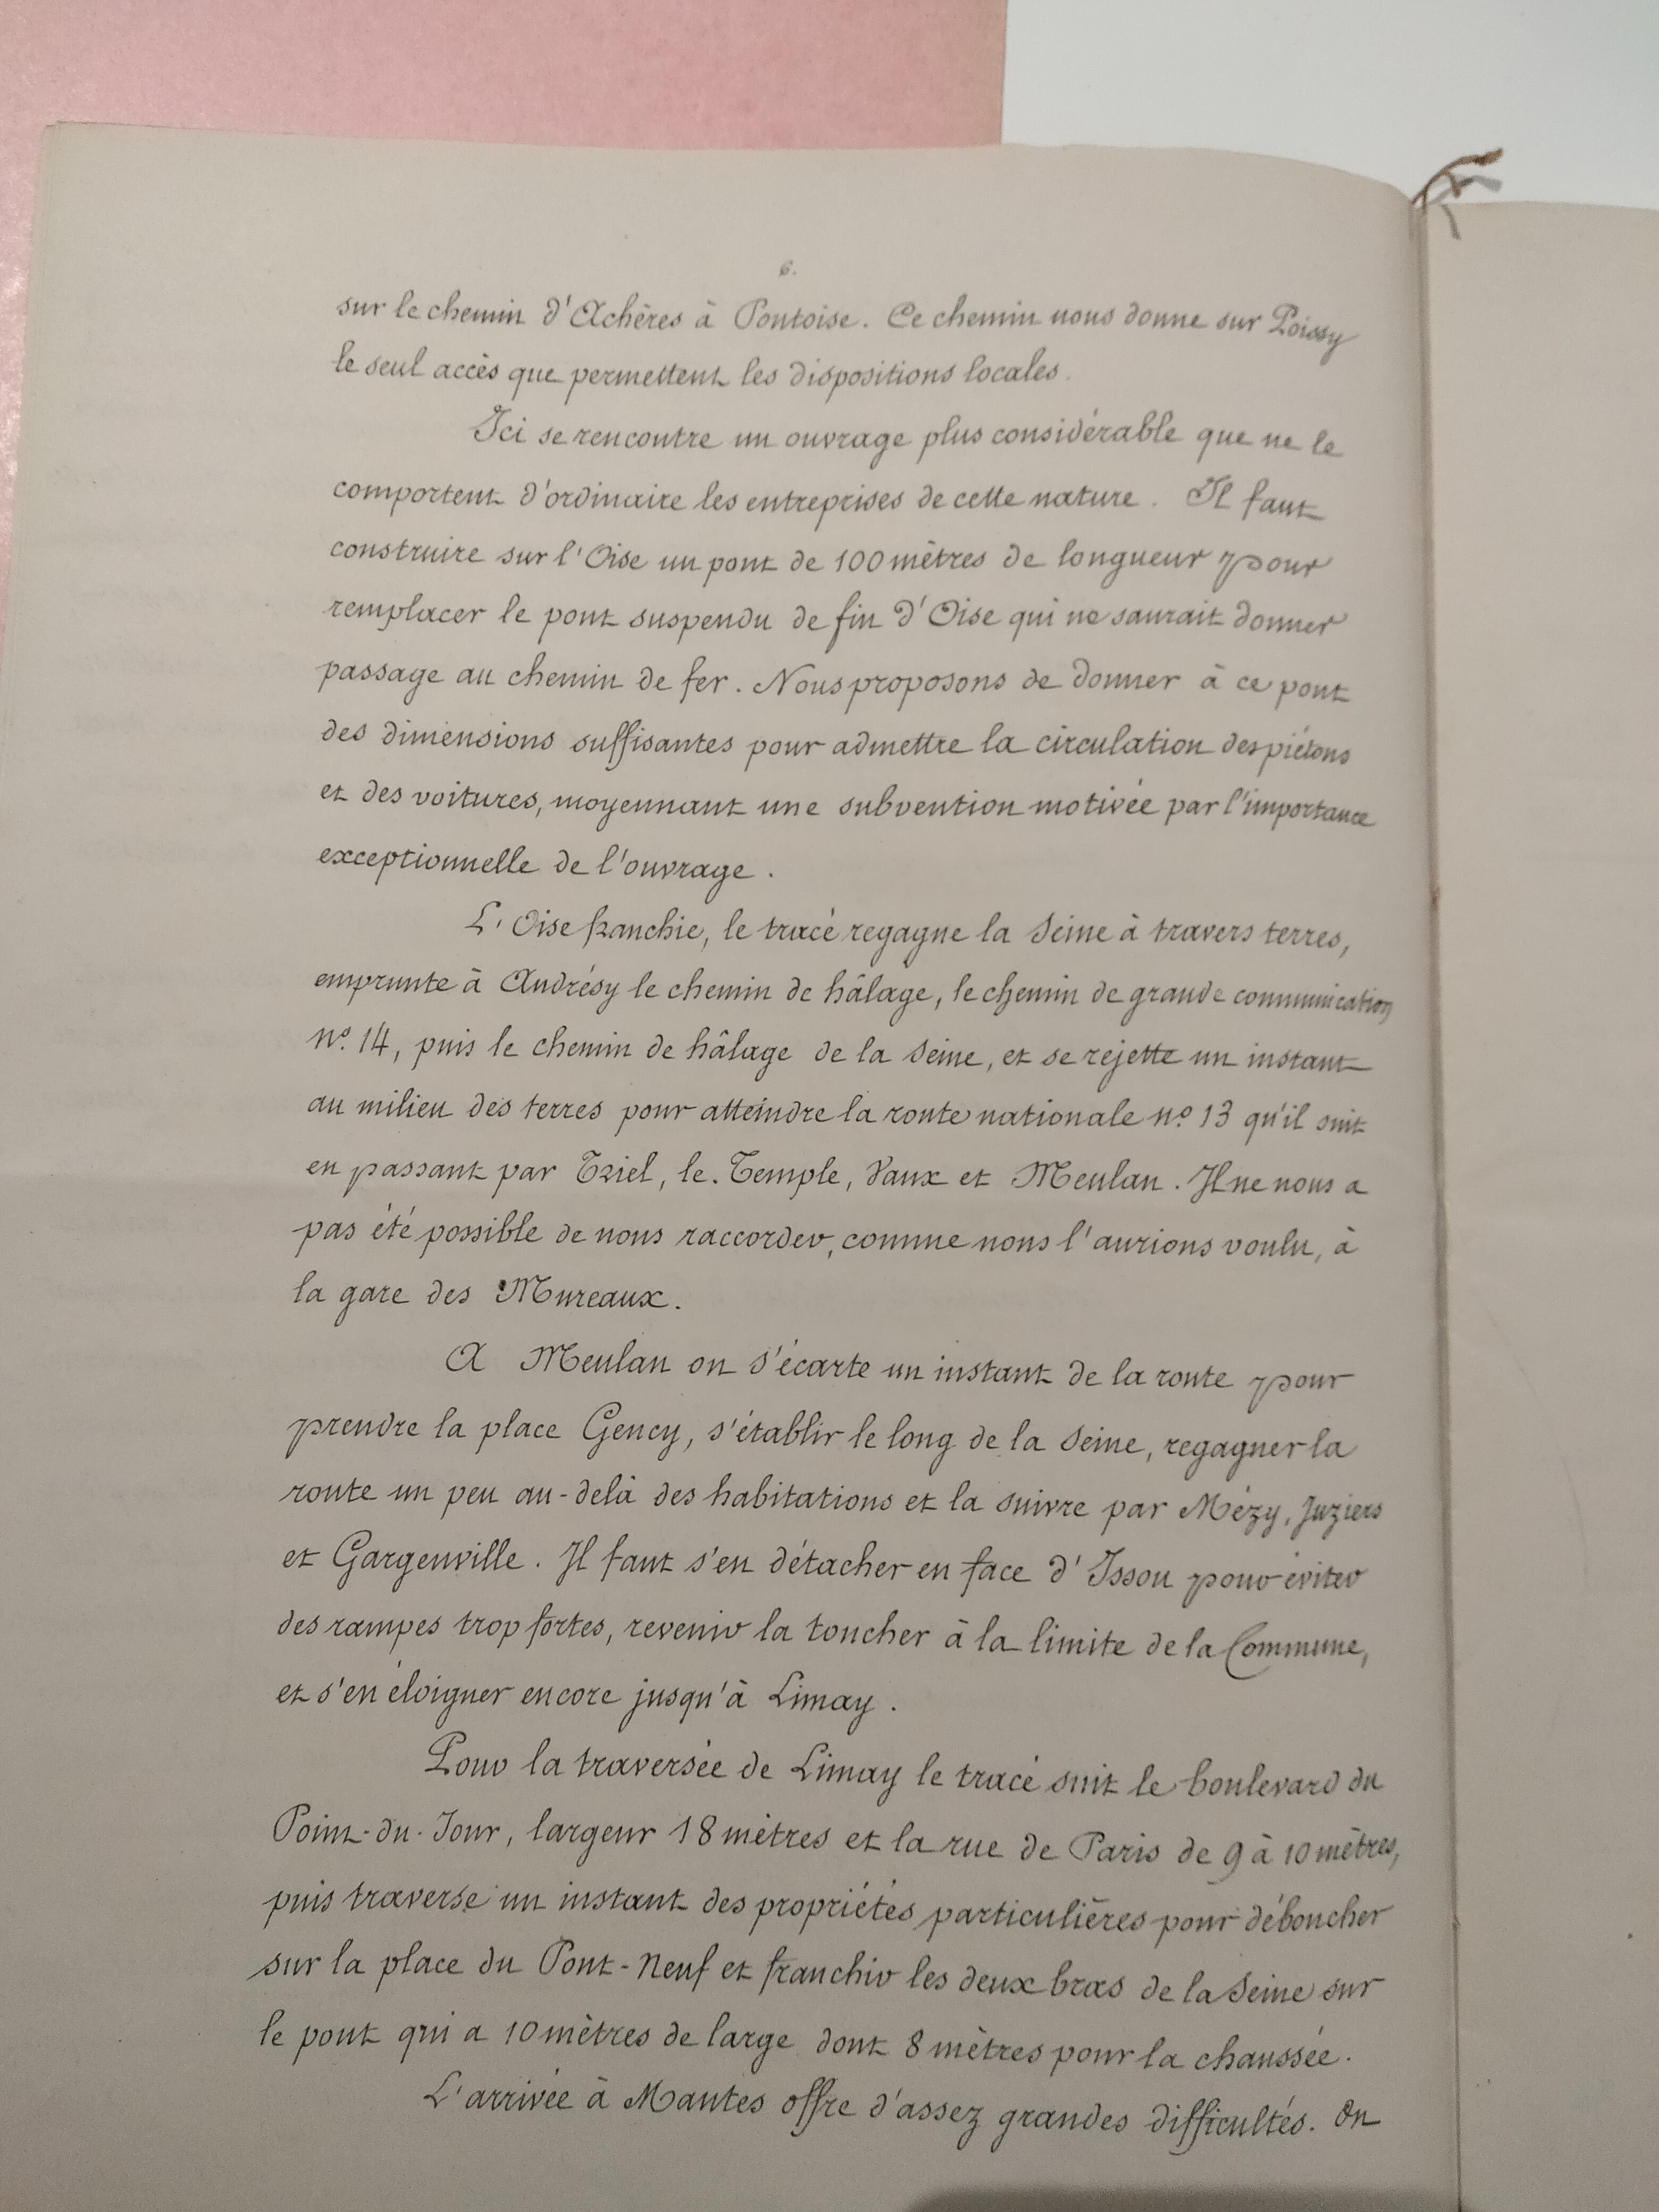 6.
sur le chemin d'Achères à Pontoise. Ce chemin nous donne sur Poissy
le seul accès que permettent les dispositions locales.
Ici se rencontre un ouvrage plus considérable que ne le
comportent d'ordinaire les entreprises de cette nature. Il faut
construire sur l'Oise un pont de 100 mètres de longueur pour
remplacer le pont suspendu de fin d'Oise qui ne saurait donner
passage au chemin de fer. Nous proposons de donner à ce pont
des dimensions suffisantes pour admettre la circulation des piétons
et des voitures, moyennant une subvention motivée par l'importance
exceptionnelle de l'ouvrage.
L'Oise franchie, le tracé regagne la Seine à travers terres,
emprunte à Andrésy le chemin de hâlage, le chemin de grande communication
nº. 14, puis le chemin de hâlage de la Seine, et se rejette un instant
au milieu des terres pour atteindre la route nationale nº 13 qu'il suit
en passant par Triel, le. Temple, Vaux et Meulan. Il ne nous a
pas été possible de nous raccorder, comme nous l'aurions voulu, à
la gare des Mureaux.
A Meulan on s'écarte un instant de la route pour
prendre la place Gency, s'établir le long de la Seine, regagner la
route un peu au-delà des habitations et la suivre par Mézy, Juziers
et Gargenville. Il faut s'en détacher en face d'Issou pour éviter
des rampes trop fortes, revenir la toucher à la limite de la Commune,
et s'en éloigner encore jusqu'à Limay.
Pour la traversée de Limay le tracé suit le boulevard du
Point-du-Jour, largeur 18 mètres et la rue de Paris de 9 à 10 mètres,
puis traverse un instant des propriétés particulières pour déboucher
sur la place du Pont-Neuf et franchir les deux bras de la Seine sur
le pont qui a 10 mètres de large dont 8 mètres pour la chaussée.
L'arrivée à Mantes offre d'assez grandes difficultés. On